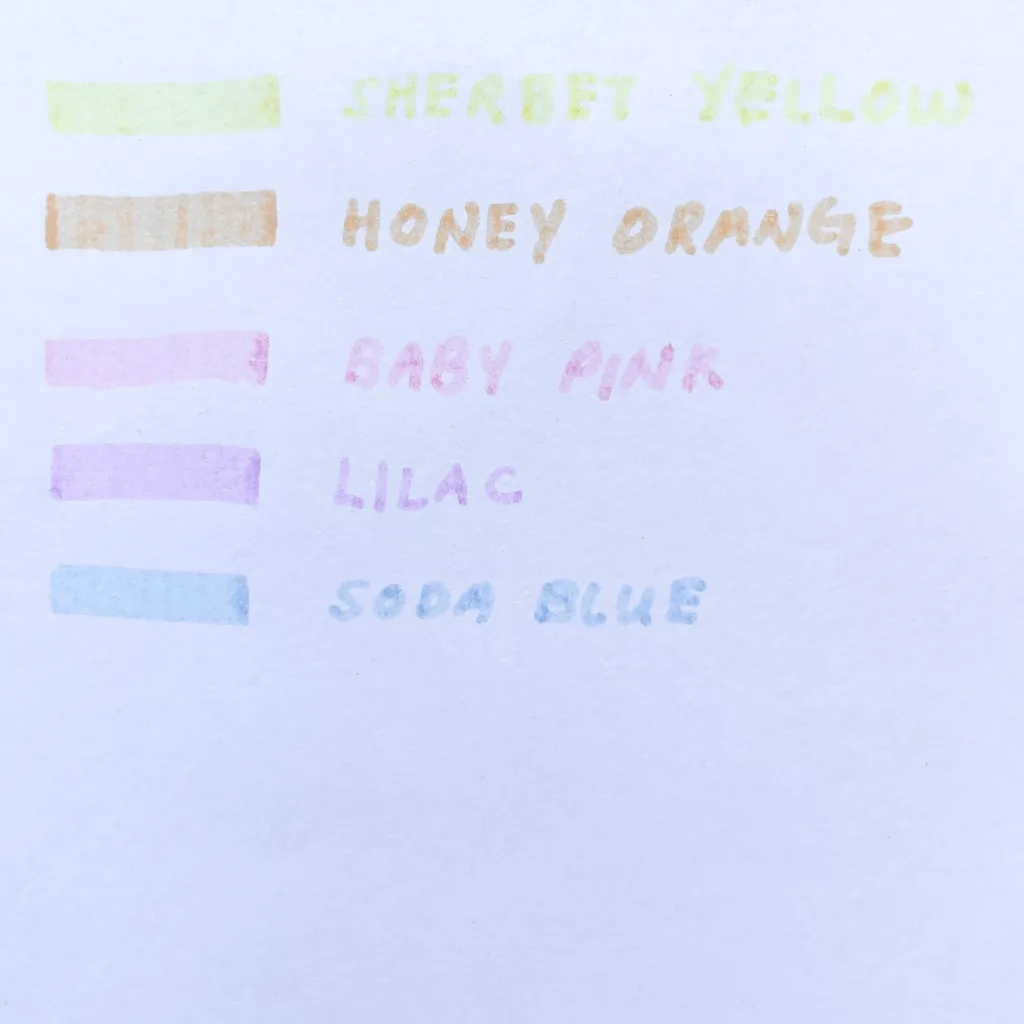 SHERBET YELLOW
HONEY ORANGE
BABY PINK
LILAC
SODA BLUE